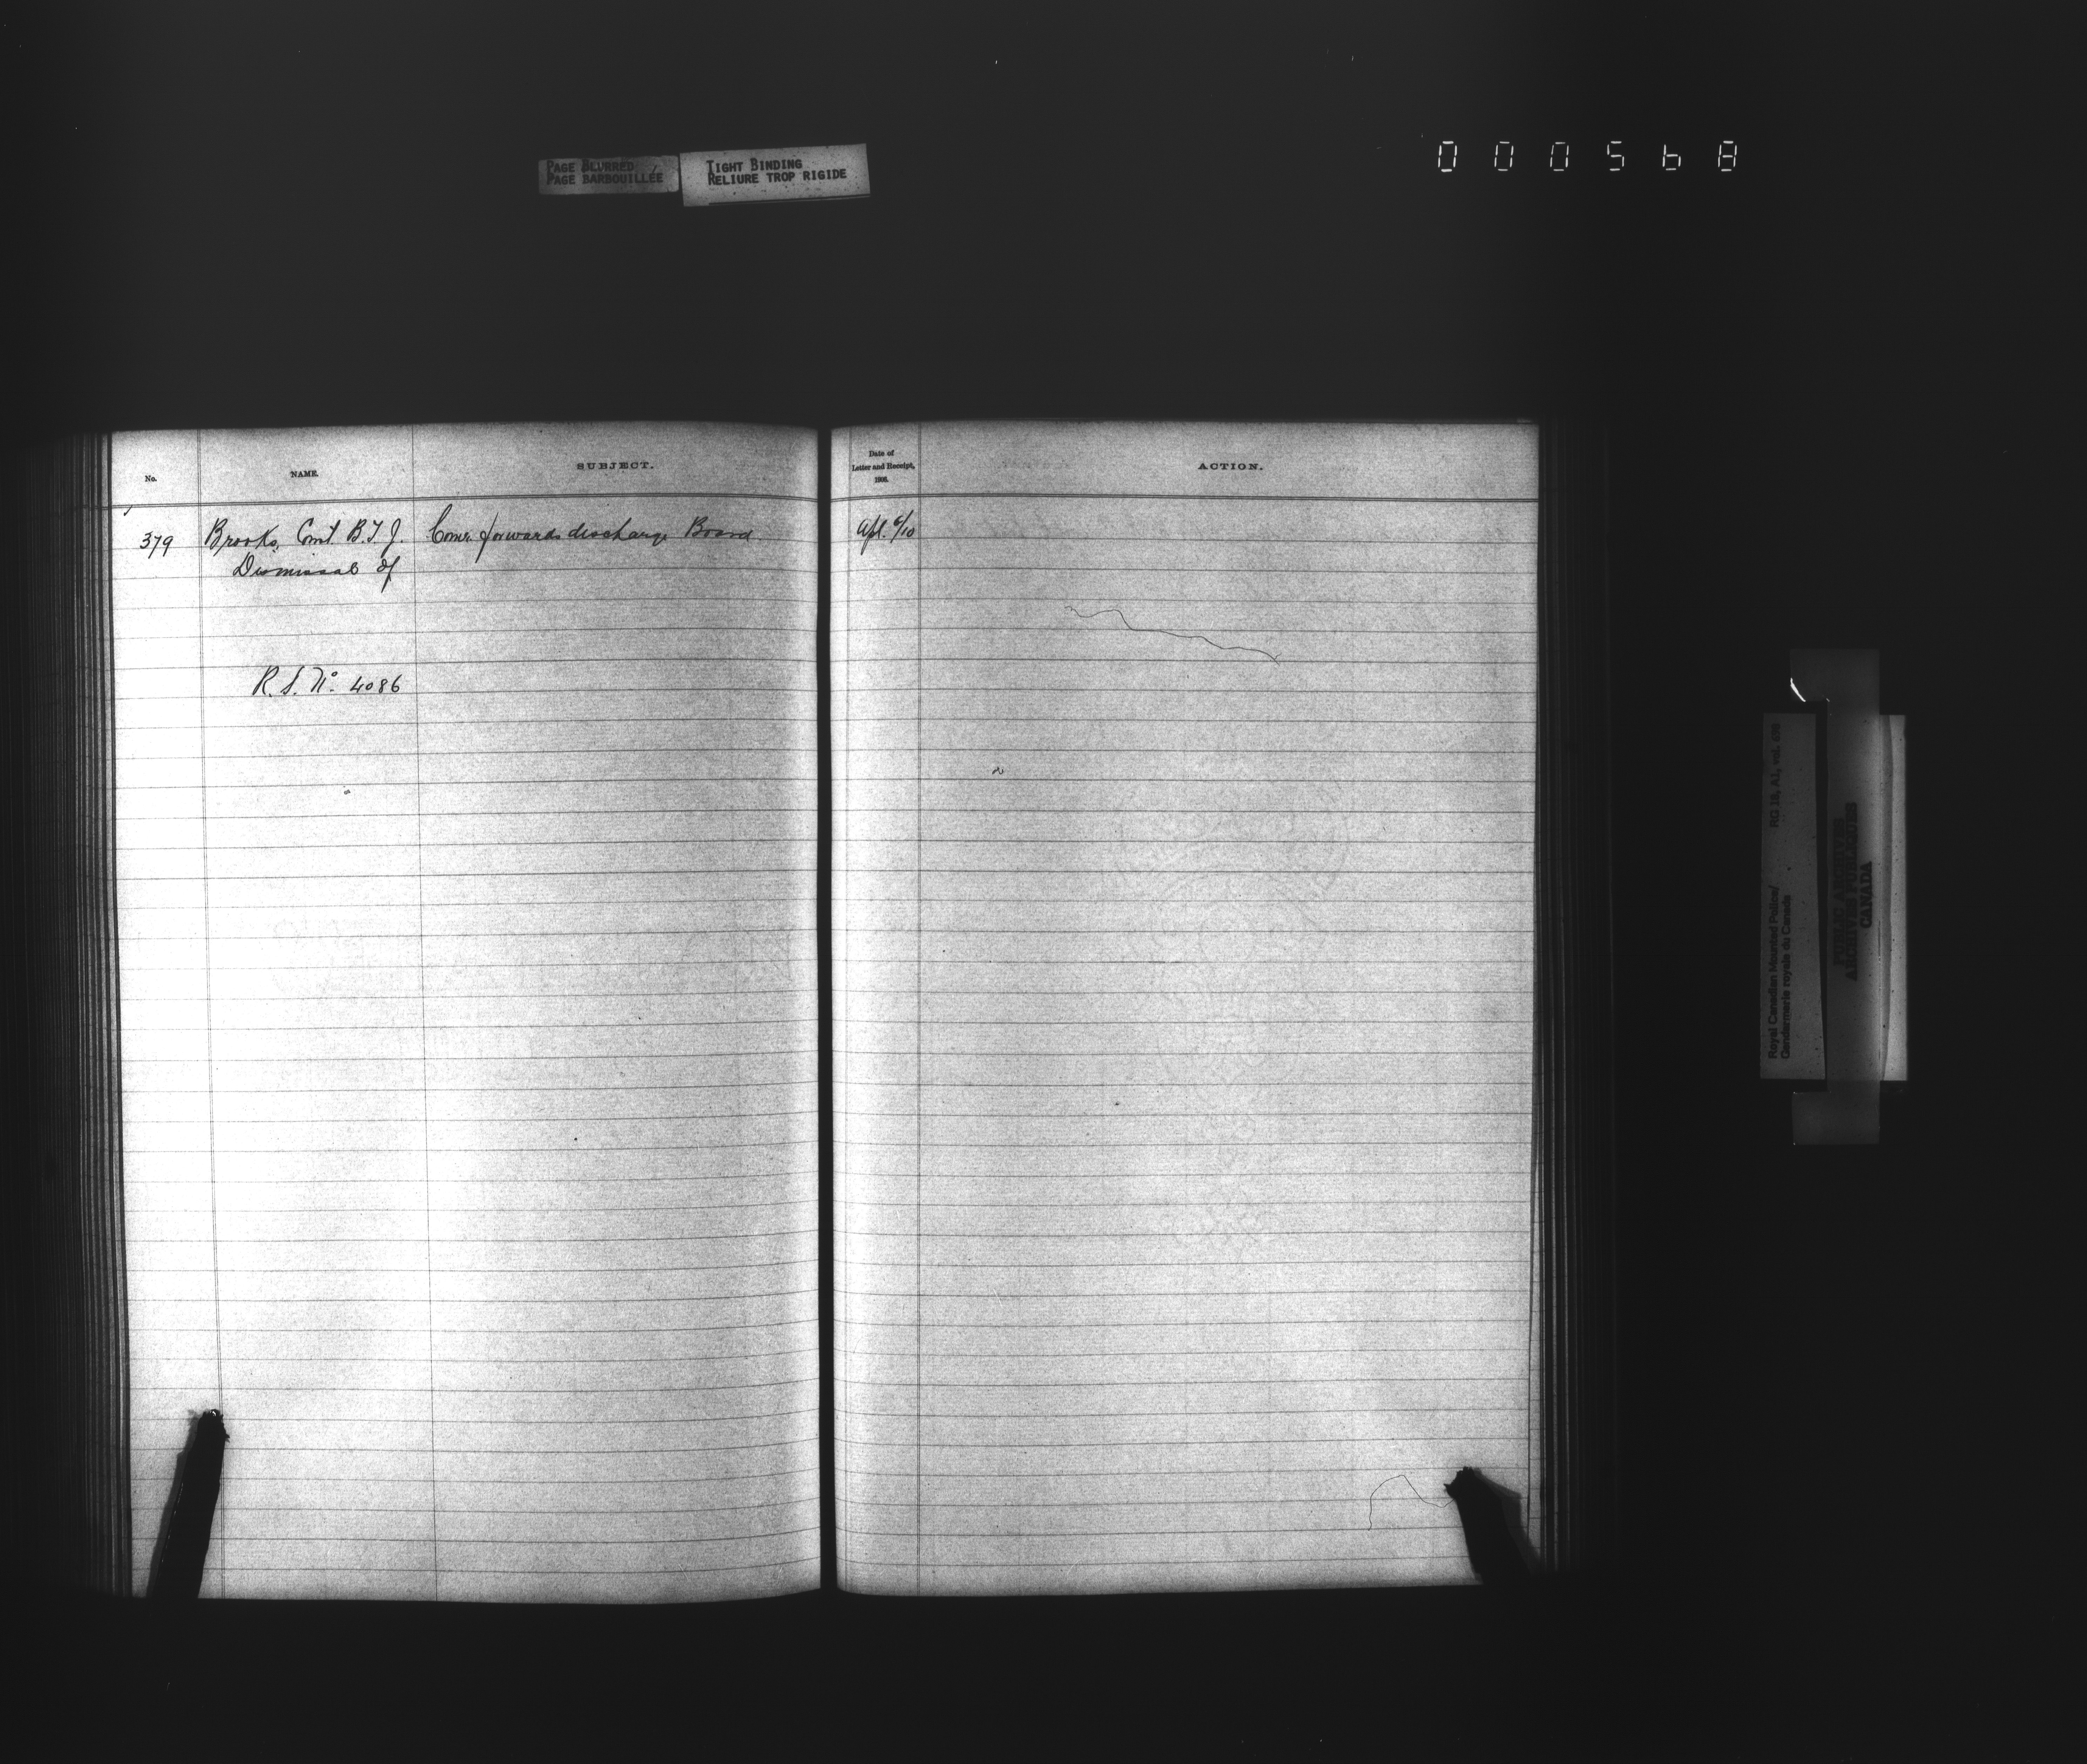 PAGE BLURRED
PAGE BARBOUILLÉE
TIGHT BINDING
RELIURE TROP RIGIDE
000568
No.
NAME.
SUBJECT.
Date of
Letter and Receipt,
1906.
ACTION.
379
Brooks, Const. B.T.J.
Dismissal of
Comr. forwards discharge Board.
Apl. 6/10
R.S. No. 4086
Royal Canadian Mounted Police/
Gendarmerie royale du Canada
RG 18, A1, vol. 698
PUBLIC ARCHIVES
ARCHIVES PUBLIQUES
CANADA